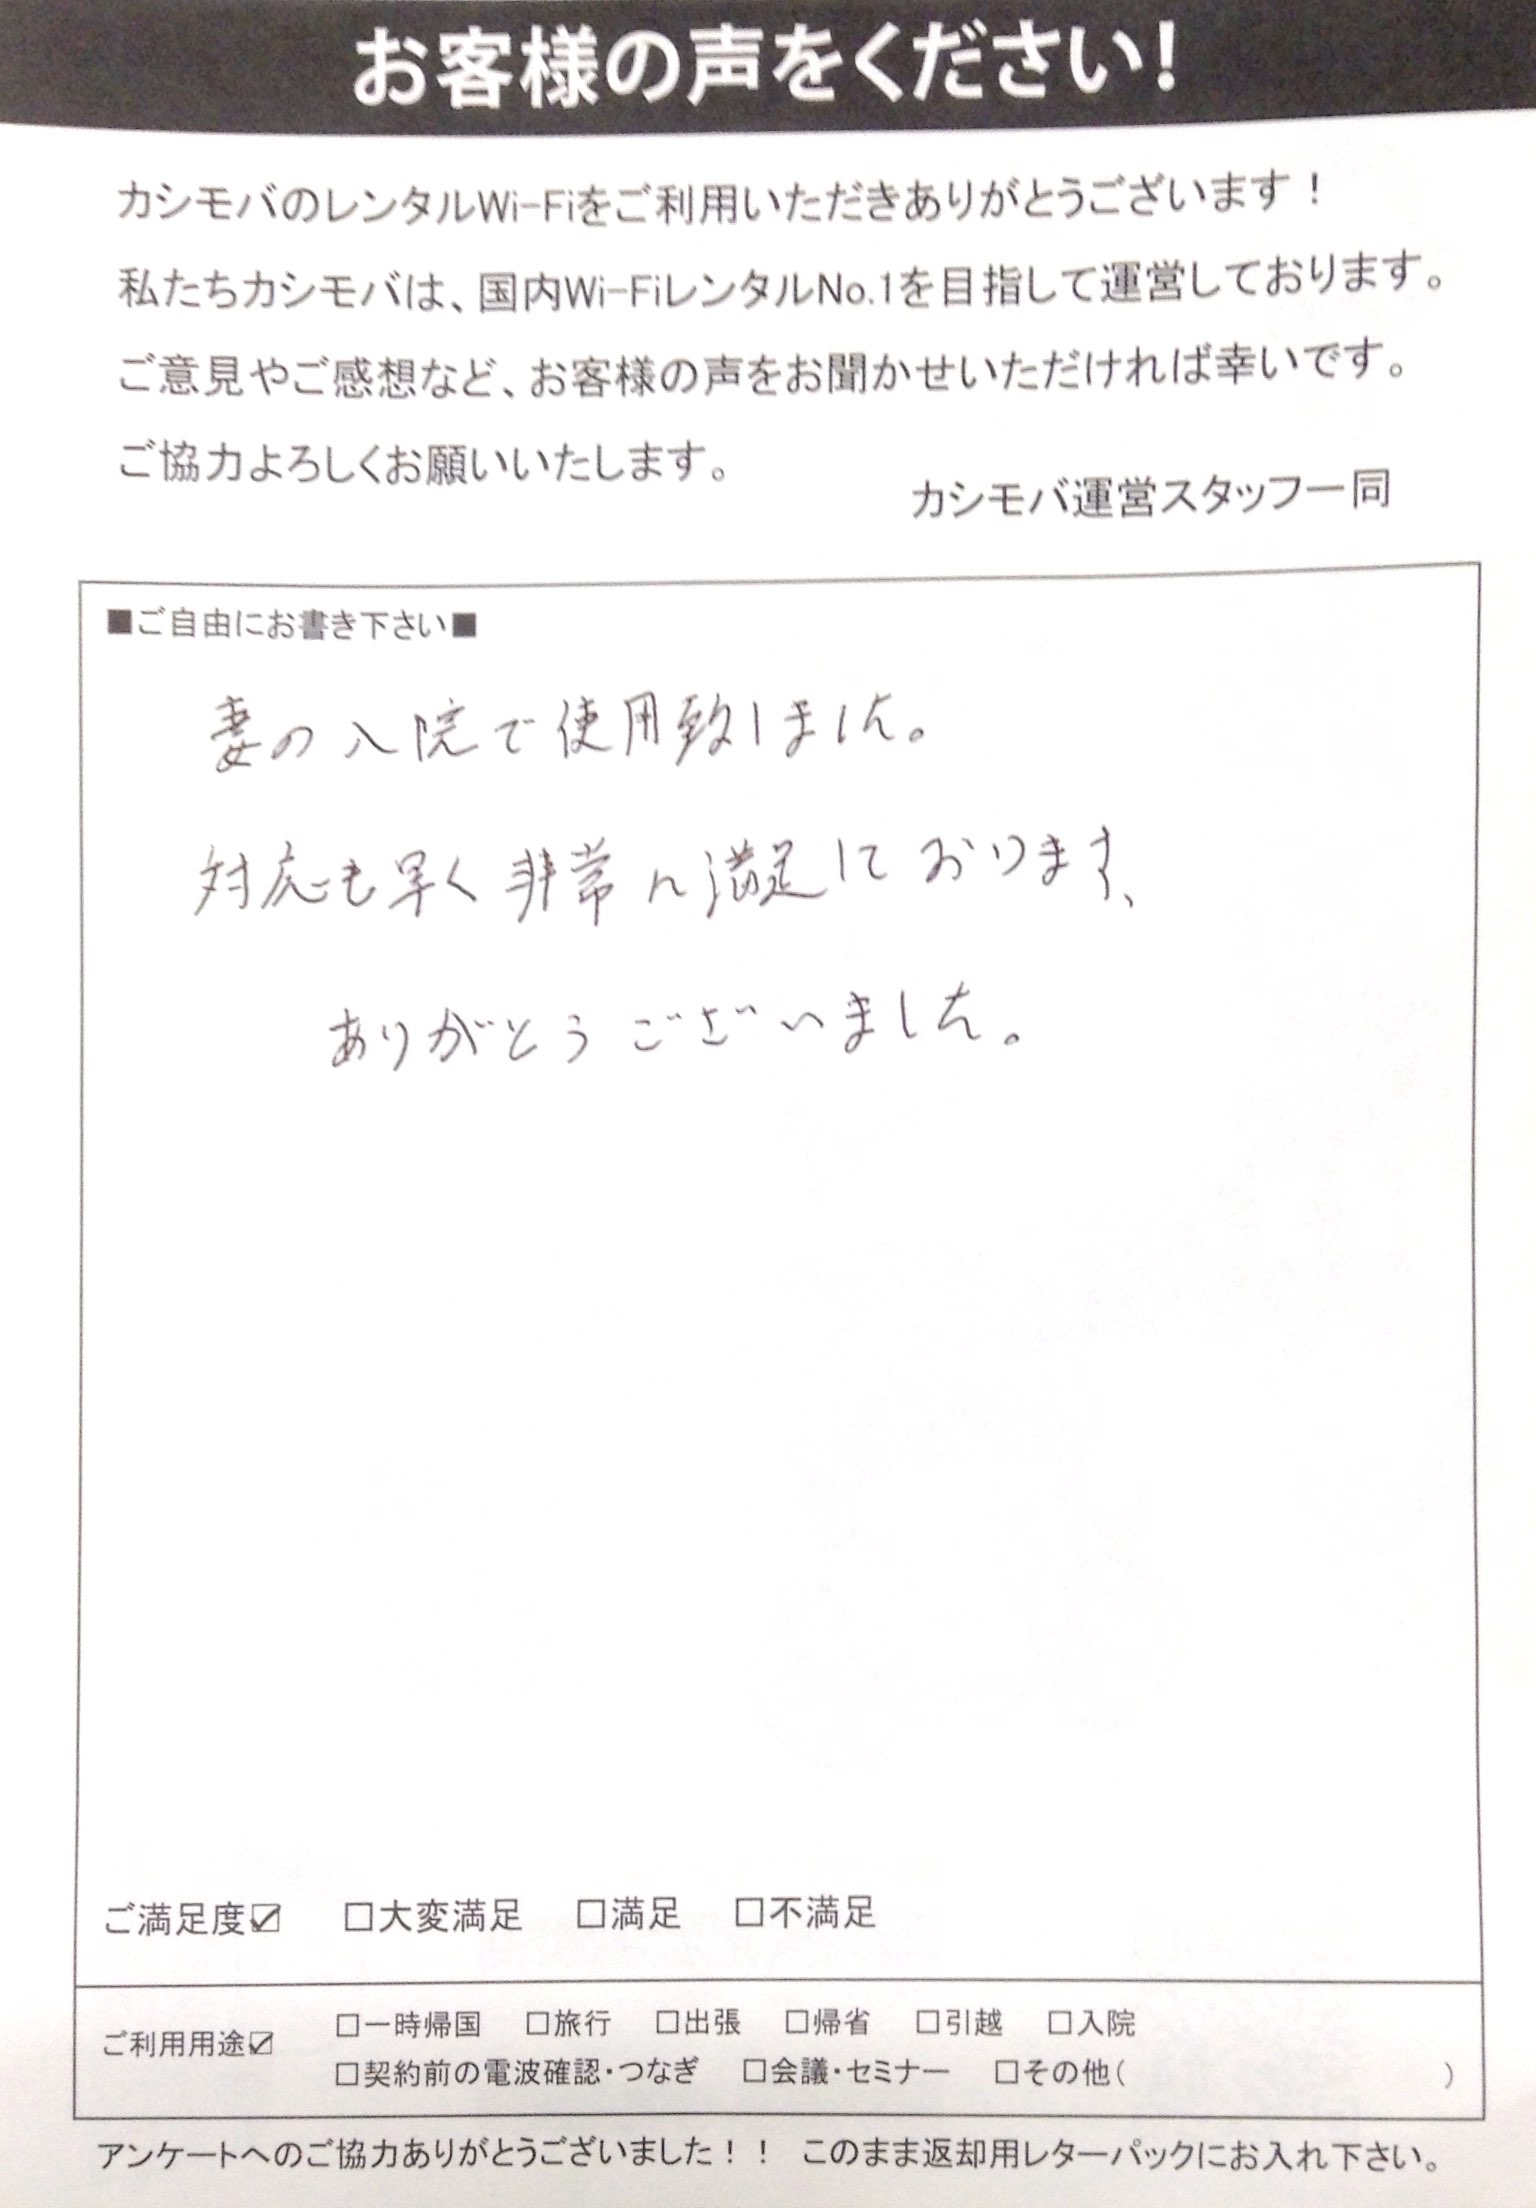 お客様の声をください!
カシモバのレンタルWi-Fiをご利用いただきありがとうございます！
私たちカシモバは、国内Wi-FiレンタルNo.1を目指して運営しております。
ご意見やご感想など、お客様の声をお聞かせいただければ幸いです。
ご協力よろしくお願いいたします。
カシモバ運営スタッフ一同
■ご自由にお書き下さい■
妻の入院で使用致しました。
対応も早く非常に満足しております、
ありがとうございました。
ご満足度☑ □大変満足 □満足 □不満足
ご利用用途☑ □一時帰国 □旅行 □出張 □帰省 □引越 □入院
□契約前の電波確認・つなぎ □会議・セミナー □その他( )
アンケートへのご協力ありがとうございました！！ このまま返却用レターパックにお入れ下さい。